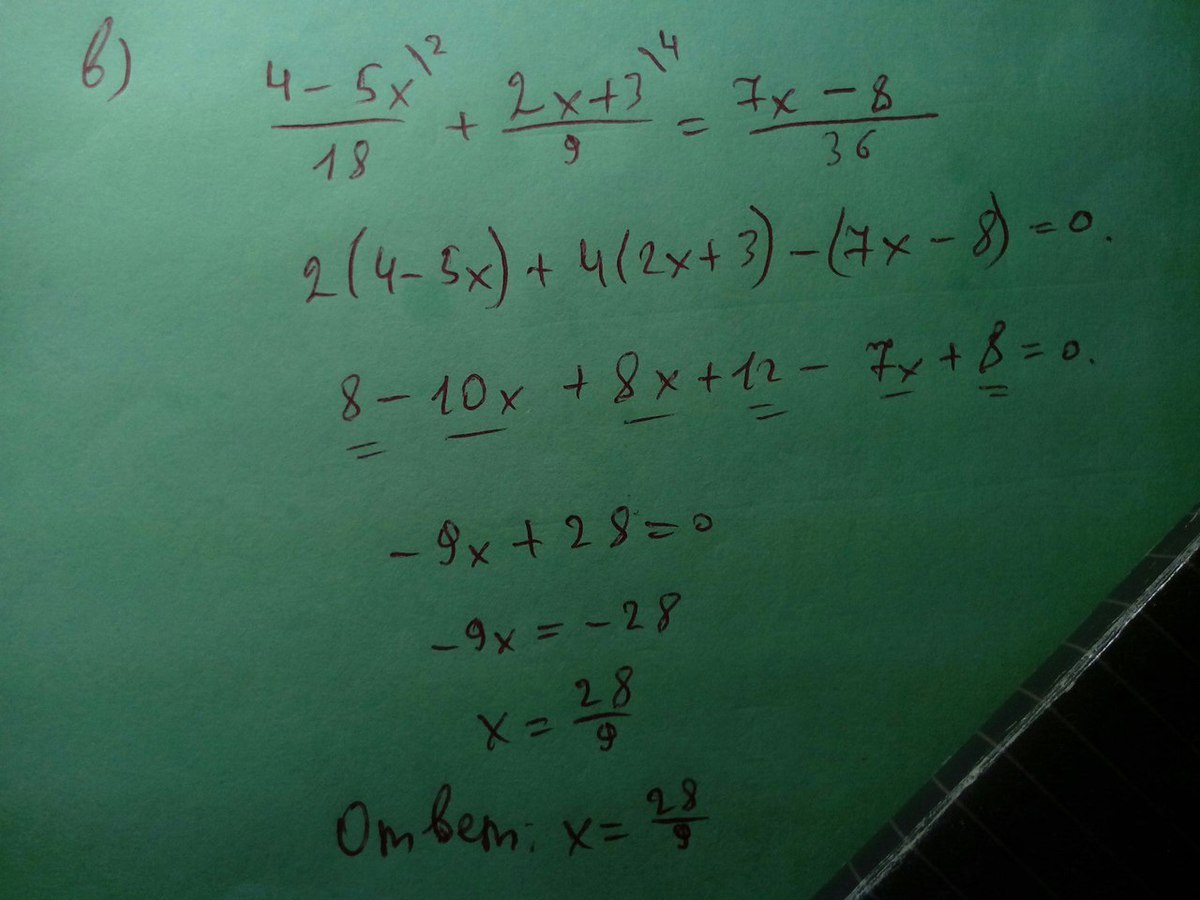 в) (4 - 5x)/18 \2 + (2x + 3)/9 \4 = (7x - 8)/36
2(4 - 5x) + 4(2x + 3) - (7x - 8) = 0.
8 - 10x + 8x + 12 - 7x + 8 = 0.
-9x + 28 = 0
-9x = -28
x = 28/9
Ответ: x = 28/9